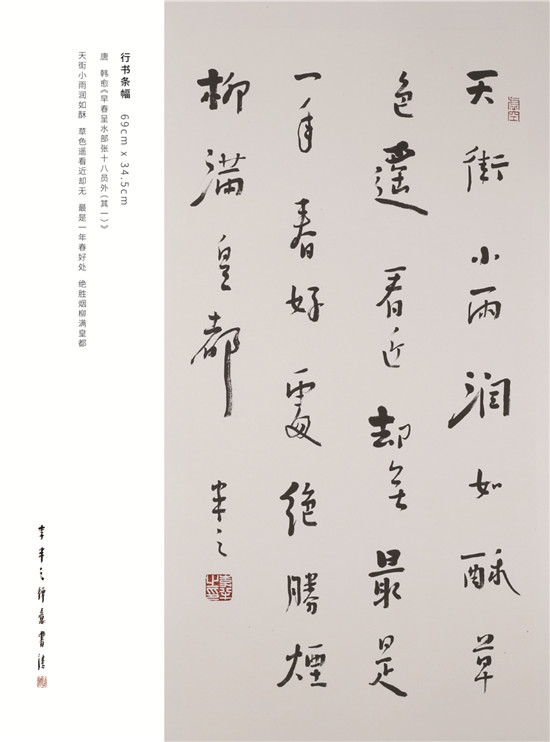 天街小雨潤如酥草
色遙看近却无最是
一年春好處絕勝煙
柳滿皇都
之
行书条幅 69cm x 34.5cm
唐 韩愈《早春呈水部张十八员外（其一）》
天街小雨润如酥 草色遥看近却无 最是一年春好处 绝胜烟柳满皇都
李 之禪意書法